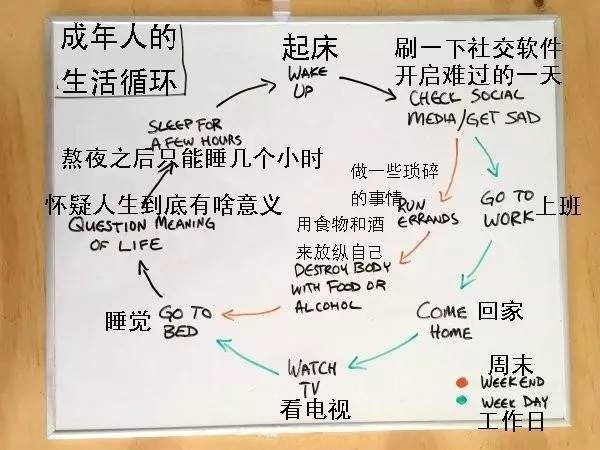 成年人的
生活循环
起床
WAKE
UP
刷一下社交软件
开启难过的一天
CHECK SOCIAL
MEDIA/GET SAD
SLEEP FOR
A FEW HOURS
熬夜之后只能睡几个小时
做一些琐碎
的事情
RUN
ERRANDS
GO TO
WORK
上班
怀疑人生到底有啥意义
QUESTION MEANING
OF LIFE
用食物和酒
来放纵自己
DESTROY BODY
WITH FOOD OR
ALCOHOL
睡觉
GO TO
BED
COME
HOME
回家
WATCH
TV
看电视
周末
WEEKEND
WEEK DAY
工作日